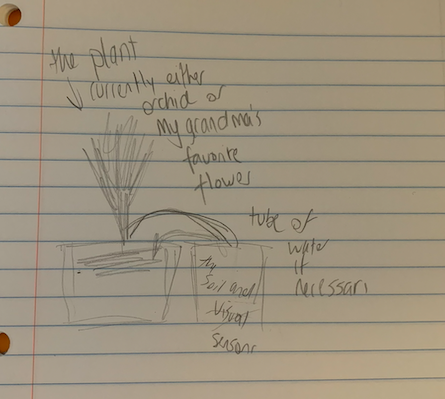 the plant
currently either
orchid or
my grandma's
favorite
flower
tube of
water
if
necessari
soil and
visual
sensors